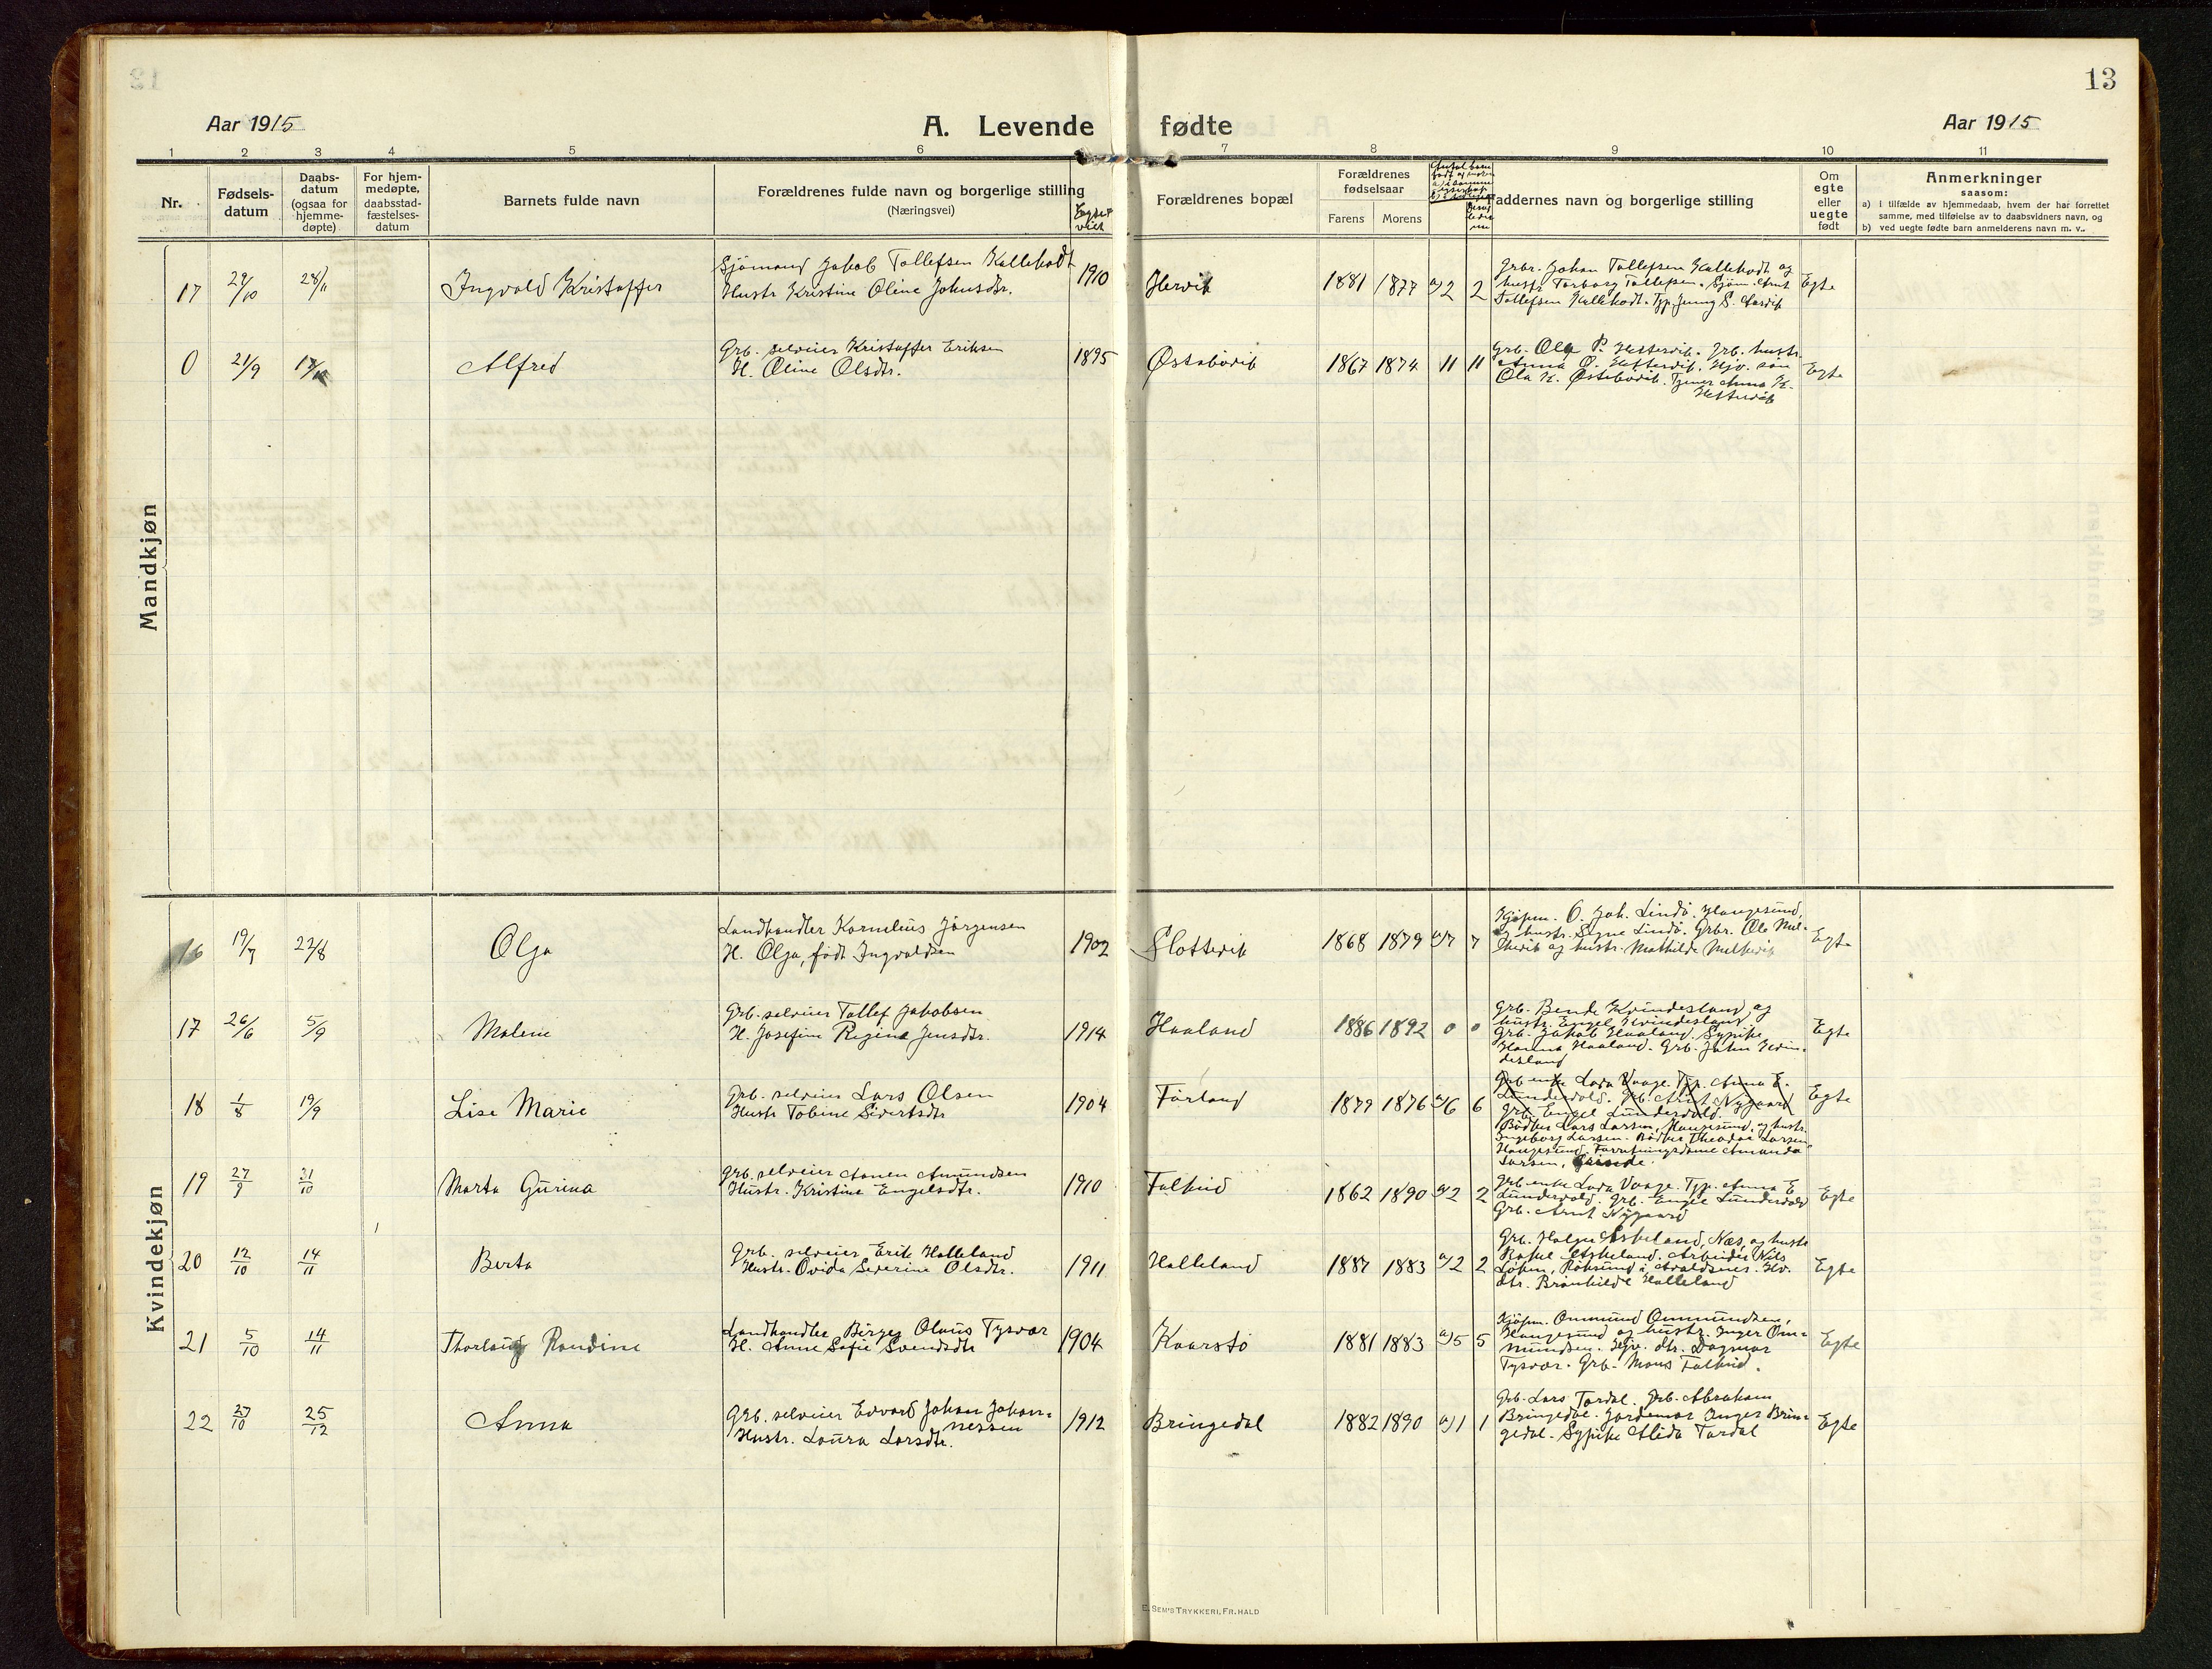 13
Aar 1915
A. Levende fødte
Aar 1915
1 2 3 4 5 6 7 8 9 10 11
Nr.
Fødsels-
datum
Daabs-
datum
(ogsaa for
hjemme-
døpte)
For hjem-
medøpte,
daabsstad-
fæstelses-
datum
Barnets fulde navn
Forældrenes fulde navn og borgerlige stilling
(Næringsvei)
Forældrenes bopæl
Forældrenes
fødselsaar
Farens Morens
Faddernes navn og borgerlige stilling
Om
egte
eller
uegte
født
Anmerkninger
saasom:
a) I tilfælde av hjemmedaab, hvem der har forrettet
samme, med tilføielse av to daabsvidners navn, og
b) ved uegte fødte barn anmelderens navn m. v..
Mandkjøn
17 29/10 28/11 Ingvald Kristoffer
Sjömand Jakob Tollefsen Kallekodt
Hustr Kristine Oline Johnsdtr.
1910 Hervik 1881 1877 a)2 2
Grbr. Johan Tollefsen Kallekodt og
hustr Torborg Tollefsen. Sjöm. Arnt
Tollefsen Kallekodt.
Egte
0 21/9 Alfred
Grb. selveier Kristoffer Eriksen
H. Oline Olsdtr.
1895 Østebövik 1867 1874 11 11
Grb. Ola P. Hettervik. Grb. hustr
Anna O. Hettervik. Hjv. sön
Ola K. Østebövik. Tjener Anna K.
Hettervik
Egte
Kvindekjøn
16 19/7 22/8 Olga
Landhandler Kornelius Jørgensen
H. Olga, född Ingvaldsen
1902 Slottevik 1868 1879 a)7 7
Kjøpm. O. Joh. Lindö. Haugesund,
og hustr. Signe Lindö. Grbr. Ole Mel-
kevik og hustr. Mathilde Melkevik
Egte
17 26/6 5/9 Malene
Grb. selveier Tollef Jakobsen
H. Josefine Regine Jensdtr.
1914 Haaland 1886 1892 0 0
Grb. Bende Kvindesland og
hustr. Engel Kvindesland
Grb. Jakob Haaland. Sypike
Hanna Haaland. Grb. John Kvin-
desland
Egte
18 1/8 19/9 Lise Marie
Grb. selveier Lars Olsen
Hustr Tobine Sivertsdtr
1904 Förland 1879 1876 a)6 6
Grb enke Lava Vaage. Tjp. Anna E.
Lundervold. Grb. Arnt Nygaard
Grb. Engel Lundervold.
Bödker Lars Larsen, Haugesund, og hustr.
Ingeborg Larsen. Bödker Theodor Larsen
Haugesund. Forretningsdame Amanda
Larsen,
Egte
19 27/9 31/10 Marta Gurina
Grb. selveier Aanen Amundsen
Hustr. Kristine Engelsdtr.
1910 Falkeid 1862 1890 a)2 2
Grb enke Lava Vaage. Tjp. Anna E
Lundervold. Grb. Engel Lundervold
Grb. Arnt Nygaard
Egte
20 12/10 14/11 Berta
Grb. selveier Erik Halleland
Hustr. Ovida Severine Olsdtr.
1911 Halleland 1887 1883 a)2 2
Grb. Helge Askeland, Næs, og hustr
Rakel Askeland. Arbeider Nils
Avaldsnes. Hv.
dtr. Brönhilde Halleland
Egte
21 5/10 14/11 Thorlaug Randine
Landhandler Birger Olaus Tysvær
H. Anne Sofie Svendsdtr
1904 Kaarstö 1881 1883 a)5 5
Kjøpm. Ommund Ommundsen,
Haugesund og hustr. Inger Om=
mundsen. Hjv. dtr. Dagmar
Tysvær. Grb. Mons Falkeid.
Egte
22 27/10 25/12 Anna
Grb. selveier Edvard Johan Johan=
nessen
Hustr. Laura Larsdtr.
1912 Bringedal 1882 1890 a)1 1
Grb. Lars Tordal. Grb. Abraham
Bringedal. Jordemor Inger Brin=
gedal. Sypike Alida Tordal
Egte
E. SEM'S TRYKKERI, FR. HALD